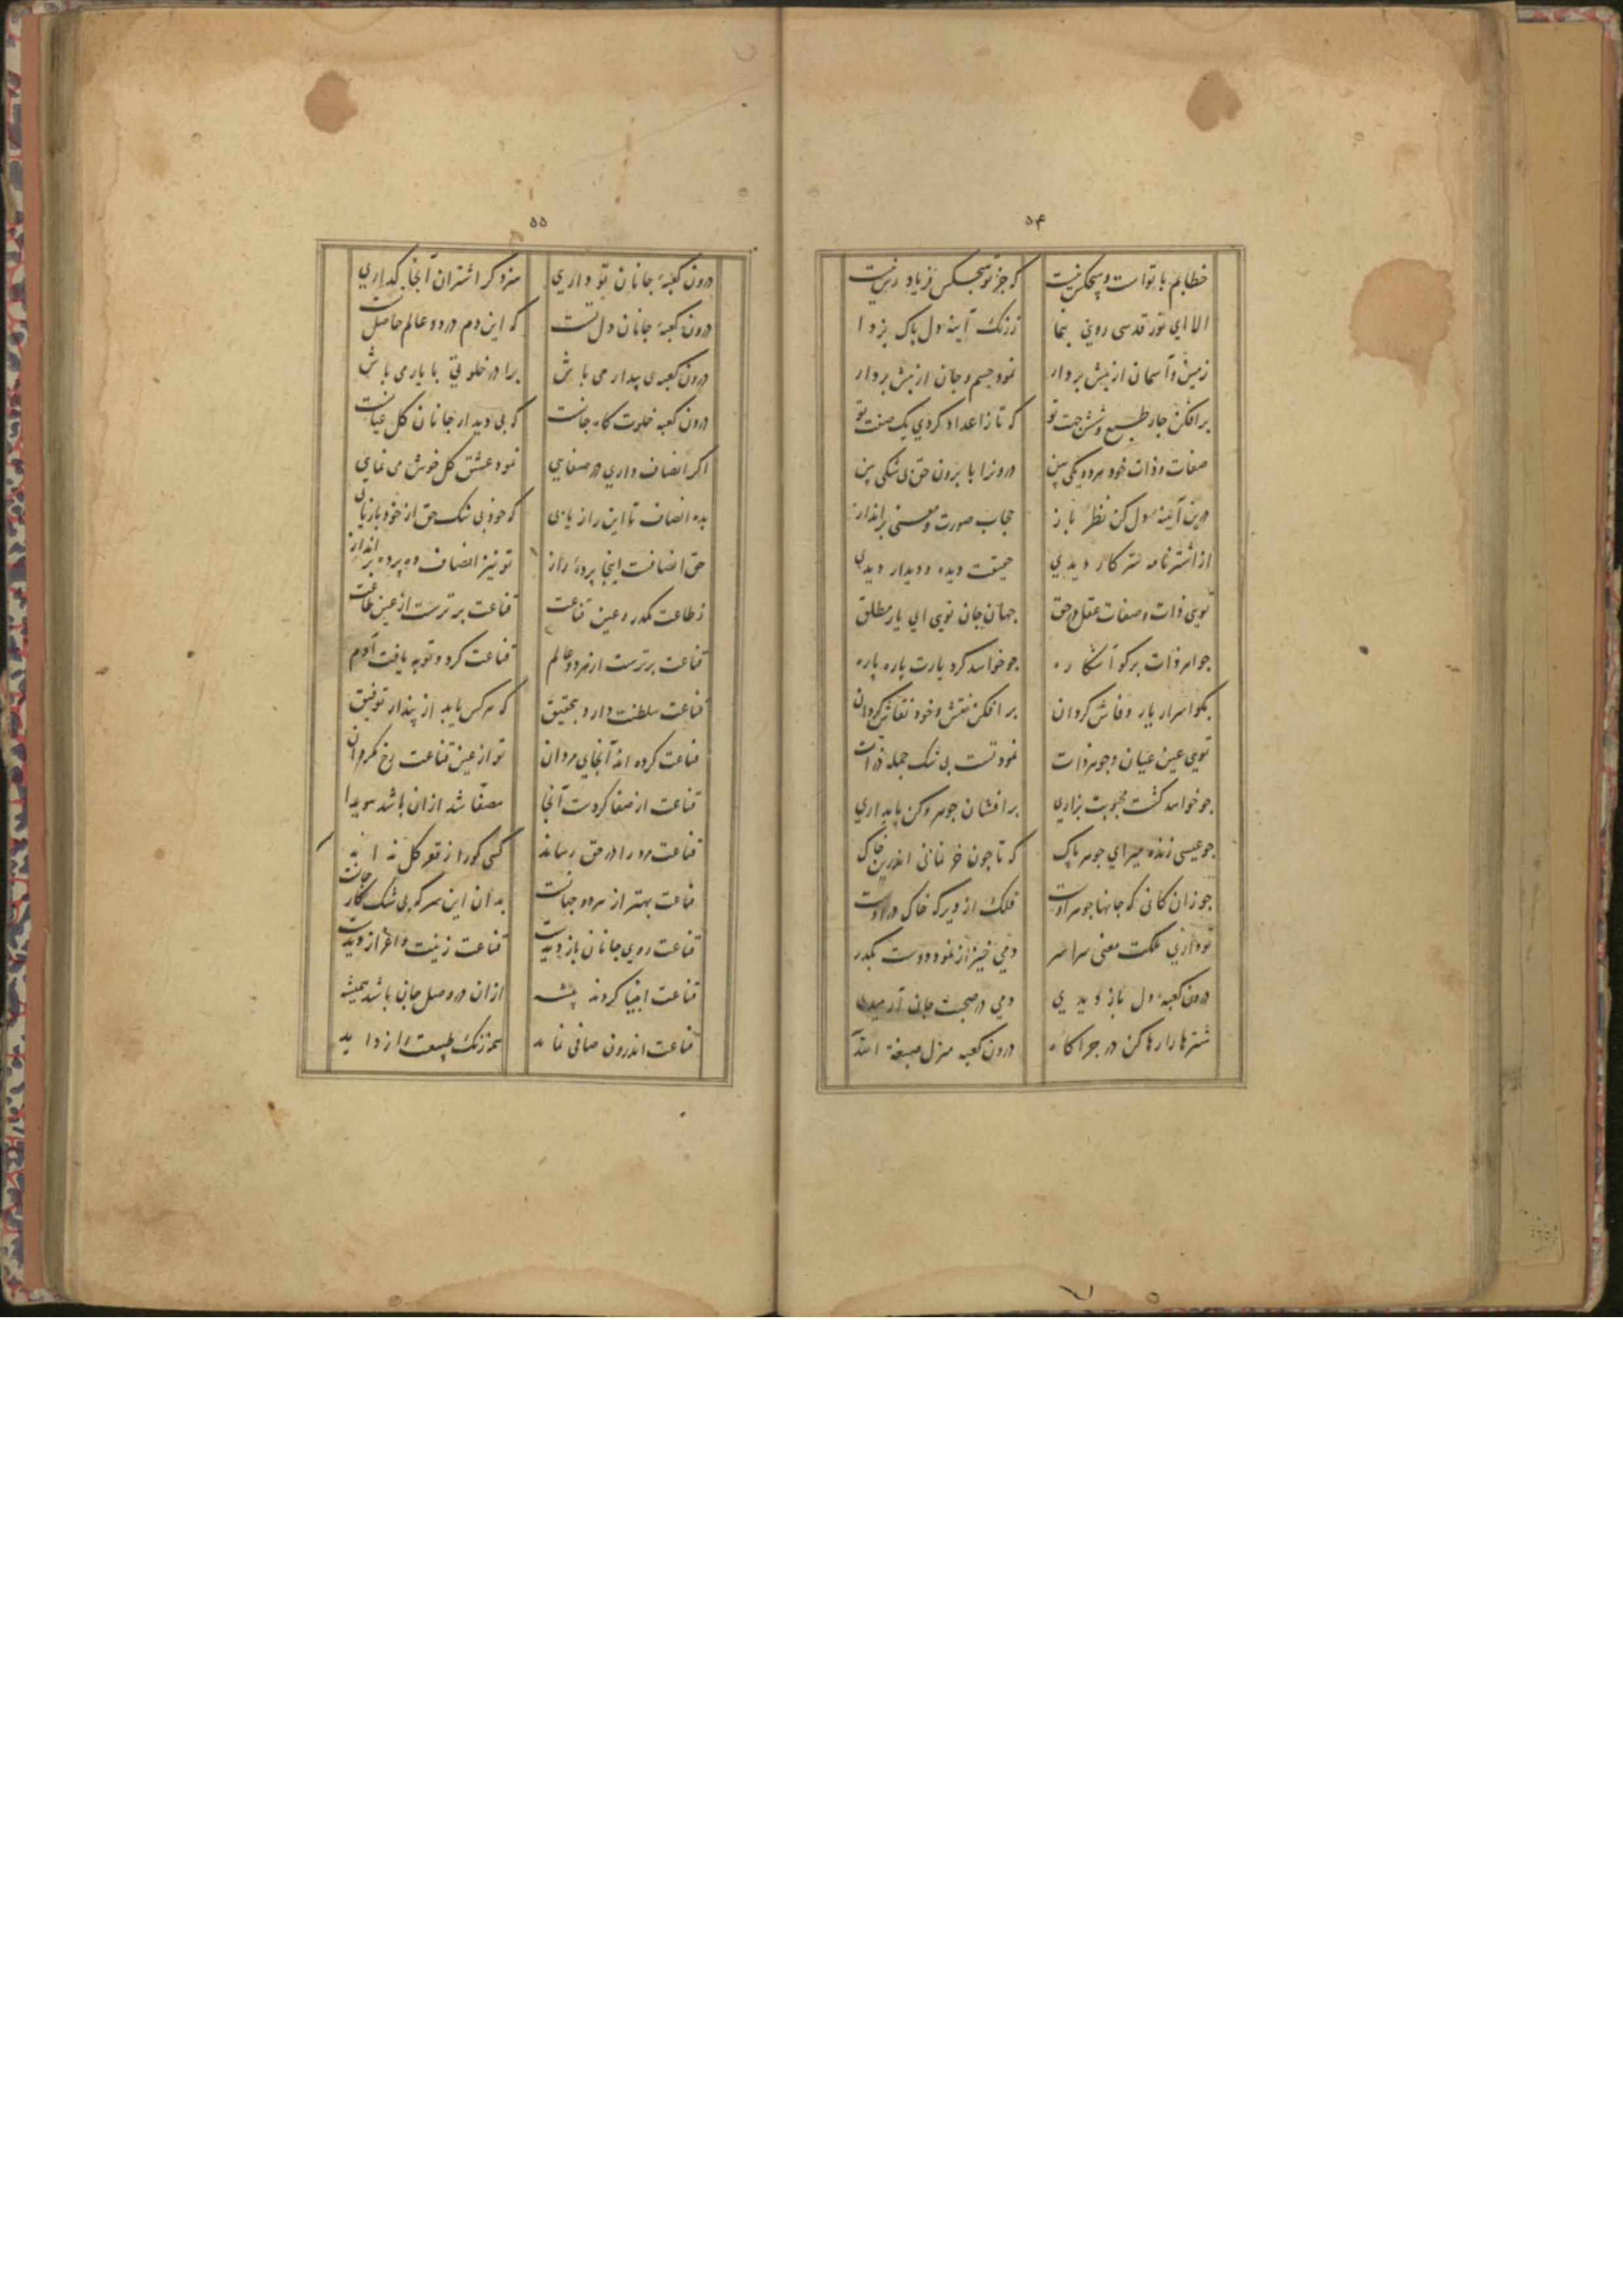 ۵۴
خطابم با تو است و هیچکس نیست که جز تو هیچکس فریاد رس نیست
الا ای نور قدسی روی بنما ز زنک آینه دل پاک بزدا
زمین و آسمان از پیش بردار نمود جسم و جان از پیش بردار
برافکن جار طبع و شش جهت تو که تا ز اعداد کردی یک صفت تو
صفات و ذات خود هر دو یکی بین درونرا با برون حق بی شکی بین
درین آینه دل کن نظر باز حجاب صورت و معنی برانداز
از اشتر نامه سر کار دیدی حقیقت دیده و دیدار دیدی
تویی ذات و صفات عقل در حق جهان جان تویی ای یار مطلق
جواهر ذات برکو آشکاره جو خواهد کرد یارت پاره پاره
بکو اسرار یار و فاش کردان برافکن نقش و خود نقاش کردان
تویی عین عیان و جوهر ذات نمود تست بی شک جمله ذرات
جو خواهد کشت محبوبت بزاری برافشان جوهر و کن پایداری
جو عیسی زنده میر ای جوهر پاک که تا جون خر نمانی اندرین خاک
جو زان کانی که جانها جوهر اوست فلک از دیر که خاک در اوست
تو داری ملکت معنی سراسر دمی خیز از نمود دوست مکدر
درون کعبه دل باز دیدی دمی در صحبت جان آرمیدی
شترها را رها کن در جراکاه درون کعبه منزل صبغة الله
۵۵
درون کعبۀ جانان تو داری سزد کر اشتران آنجا کداری
درون کعبۀ جانان دل تست که این دم در دو عالم حاصل تست
درون کعبه ی بیدار می باش برا در خلوتی با یار می باش
درون کعبه خلوت کاه جانست که بی دیدار جانان کل عیانست
اکر انصاف داری در صفایی نمود عشق کل خوش می نمایی
بده انصاف تا این راز یابی که خود بی شک حق از خود بازیابی
حق انصافست اینجا پردۀ راز تو نیز انصاف ده پرده برانداز
ز طاعت مکدر و عین قناعت قناعت برترست از عین طاعت
قناعت برترست از هر دو عالم قناعت کرد و توبه یافت آدم
قناعت سلطنت دارد بتحقیق که هر کس یابد از پندار توفیق
قناعت کرده اند آنجای مردان تو از عین قناعت رخ مکردان
قناعت از صفا کردست آنجا مصفا شد ازان باشد هویدا
قناعت مرد را در حق رساند کسی کو راز قعر کل نداند
قناعت بهتر از هر دو جهانست بدان این سر که بی شک کار جانست
قناعت روی جانان باز دیدست قناعت زینت و اعزاز دیدست
قناعت انبیا کردند پیشه ازان در وصل جان باشد همیشه
قناعت اندرون صافی نماید همه زنک طبیعت را زداید